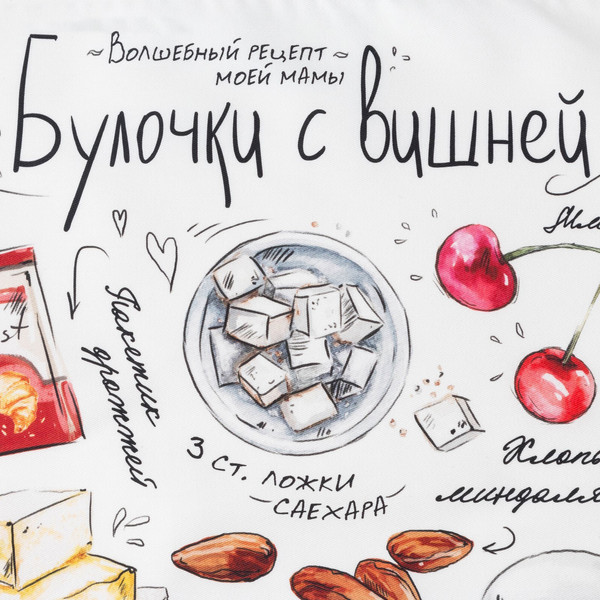 ~Волшебный рецепт~
моей мамы
Булочки с вишней
st
Пакетик
дрожжей
3 ст. ложки
саехара
Хлопь
миндаля